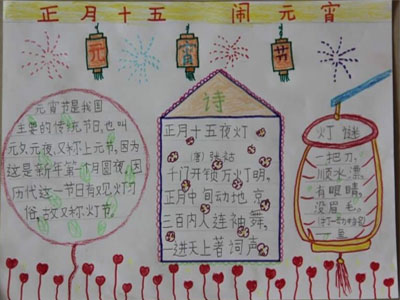 正月十五 闹元宵
元 宵 节
元宵节是我国
主要的传统节日,也叫
元夕、元夜,又称上元节,因为
这是新年第一月圆夜,因
历代这一节日有观灯习
俗,故又称灯节。
诗
正月十五夜灯
张祜
千门开锁万灯明,
正月中间动地京
三百内人连袖舞,
一进天上著词声
灯谜
一把刀,
顺水漂,
有眼睛,
没眉毛。